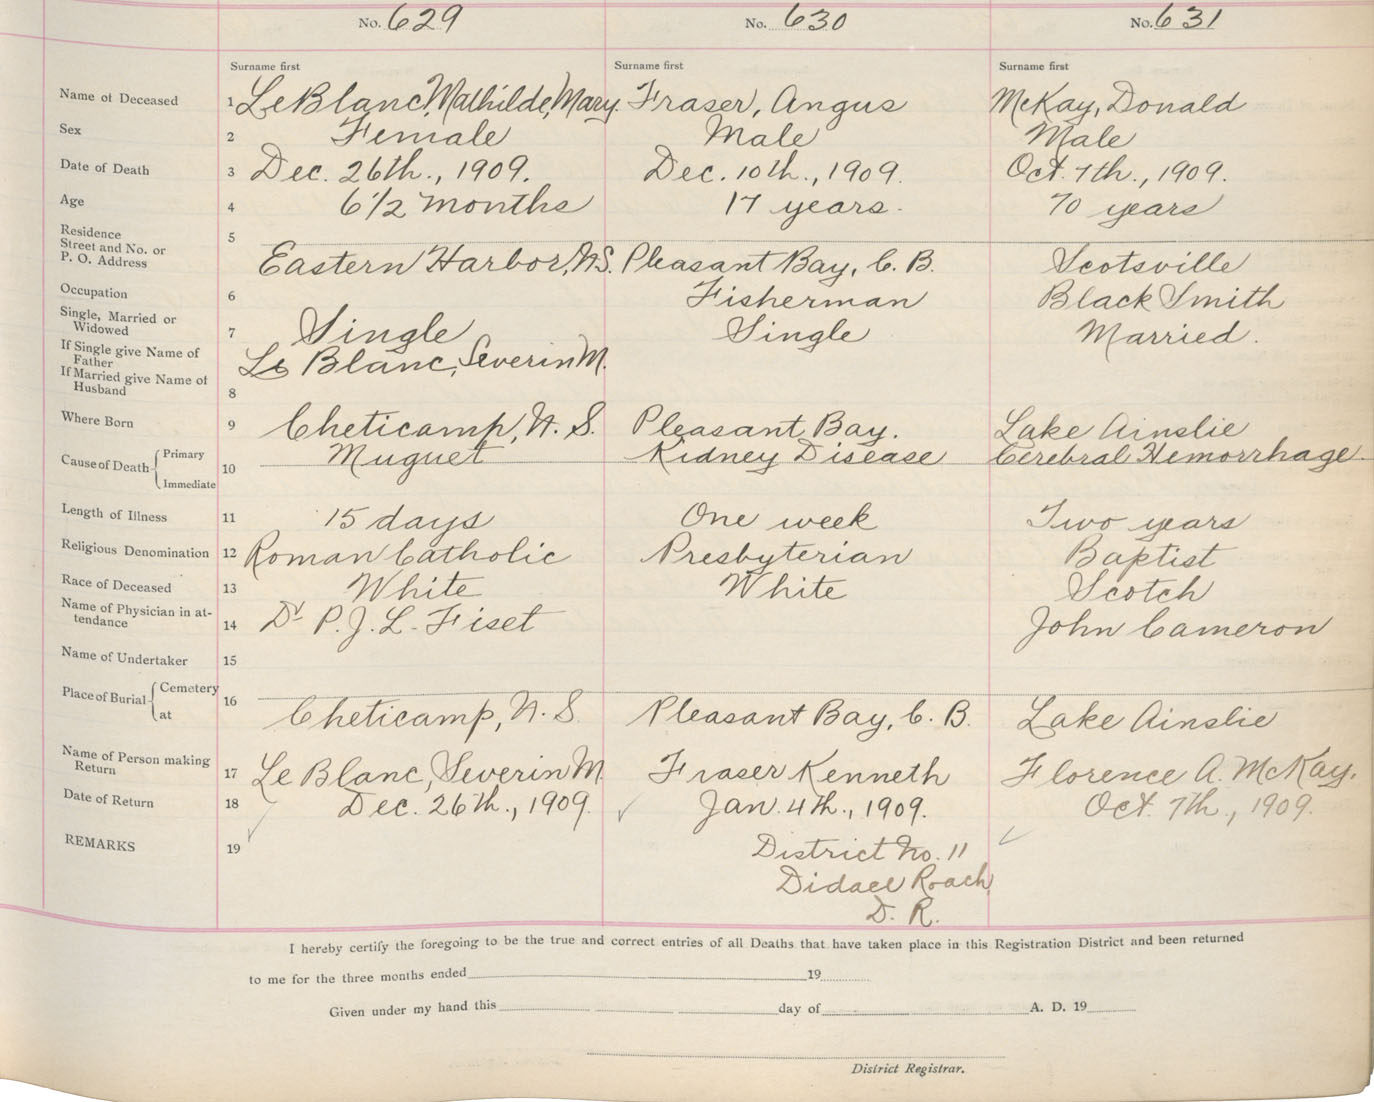 No. 629 No. 630 No. 631
Surname first Surname first Surname first
Name of Deceased 1 LeBlanc, Mathilde, Mary. Fraser, Angus McKay, Donald
Sex 2 Female Male Male
Date of Death 3 Dec. 26th., 1909. Dec. 10th., 1909. Oct. 7th., 1909.
Age 4 6 1/2 months 17 years. 70 years
Residence 5
Street and No. or
P. O. Address Eastern Harbor, N.S. Pleasant Bay, C. B. Scotsville
Occupation 6 Fisherman Black Smith
Single, Married or
Widowed 7 Single Single Married.
If Single give Name of
Father Le Blanc, Severin M.
If Married give Name of
Husband 8
Where Born 9 Cheticamp, N. S. Pleasant Bay. Lake Ainslie
Cause of Death Primary 10 Muguet Kidney Disease Cerebral Hemorrhage.
Immediate
Length of Illness 11 15 days One week Two years
Religious Denomination 12 Roman Catholic Presbyterian Baptist
Race of Deceased 13 White White Scotch
Name of Physician in at-
tendance 14 Dr P. J. L. Fiset John Cameron
Name of Undertaker 15
Place of Burial Cemetery 16
at Cheticamp, N. S. Pleasant Bay, C. B. Lake Ainslie
Name of Person making
Return 17 Le Blanc, Severin M. Fraser Kenneth Florence A. McKay.
Date of Return 18 Dec. 26th., 1909. Jan. 4th., 1909. Oct. 7th., 1909.
REMARKS 19 District No. 11
Didace Roach
D. R.
I hereby certify the foregoing to be the true and correct entries of all Deaths that have taken place in this Registration District and been returned
to me for the three months ended 19
Given under my hand this day of A. D. 19
District Registrar.